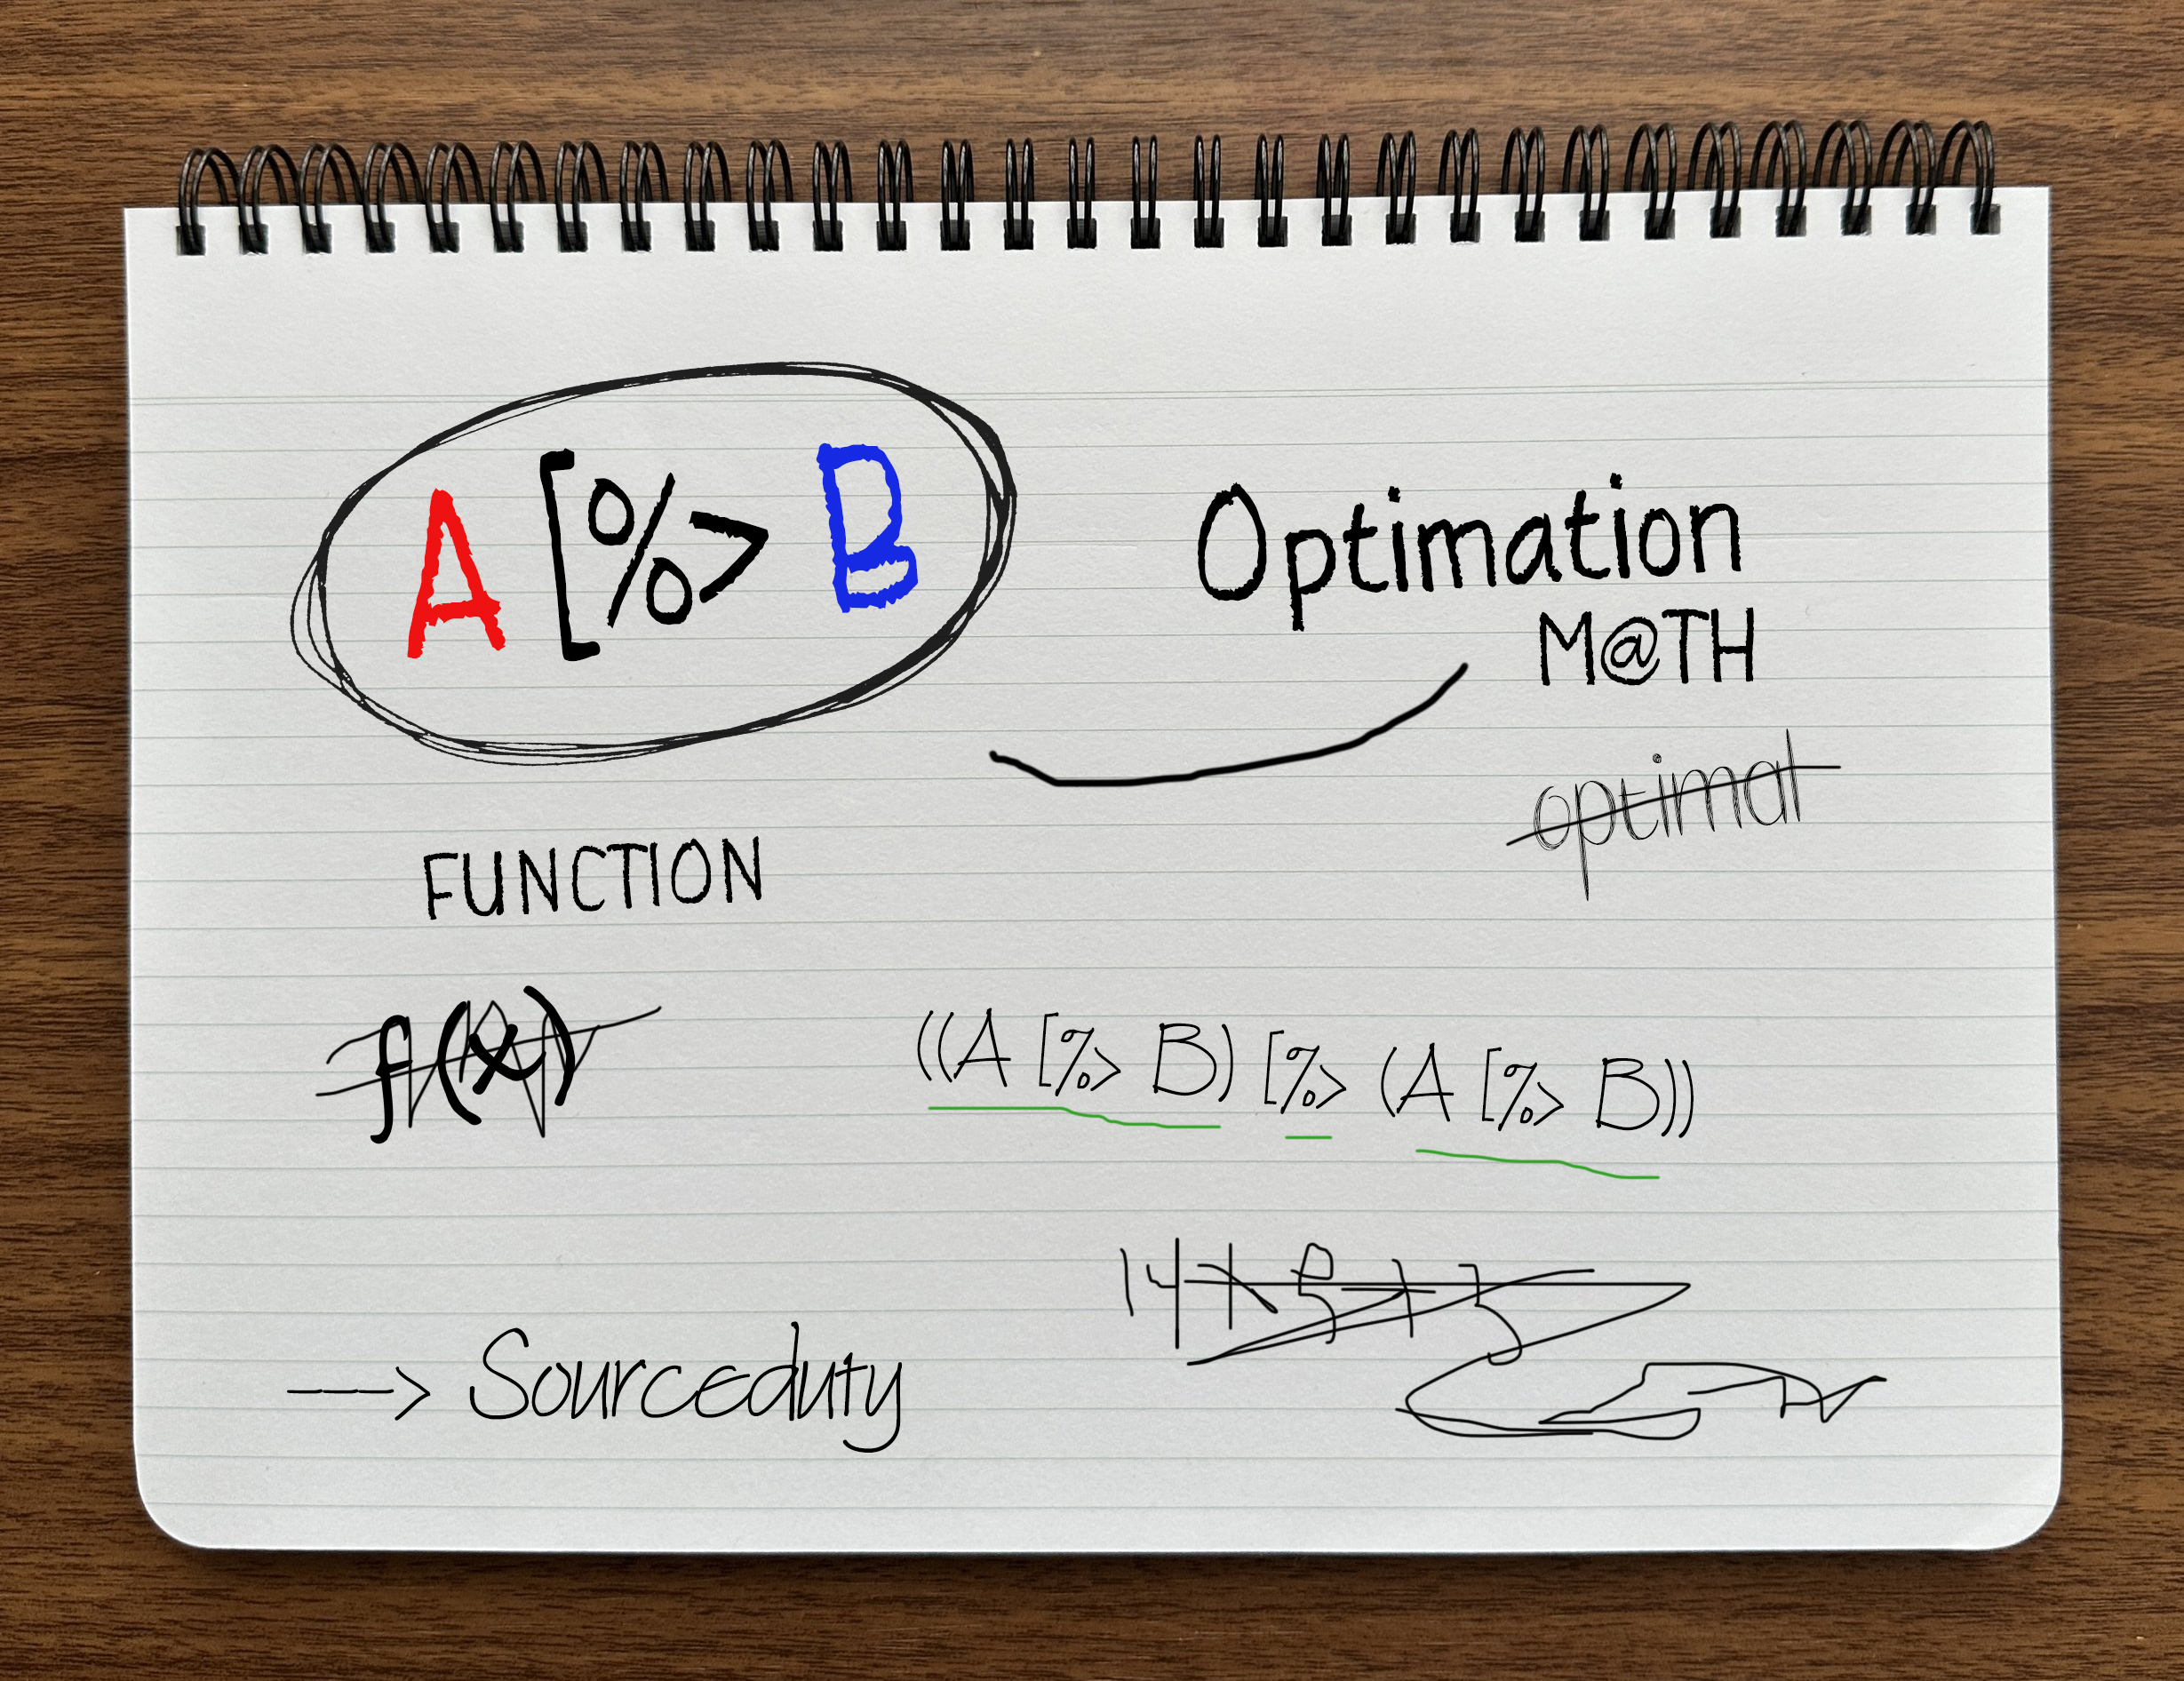 A [%> B
Optimation
M@TH
optimal
FUNCTION
f(x)
((A [%> B) [%> (A [%> B))
---> Sourceduty